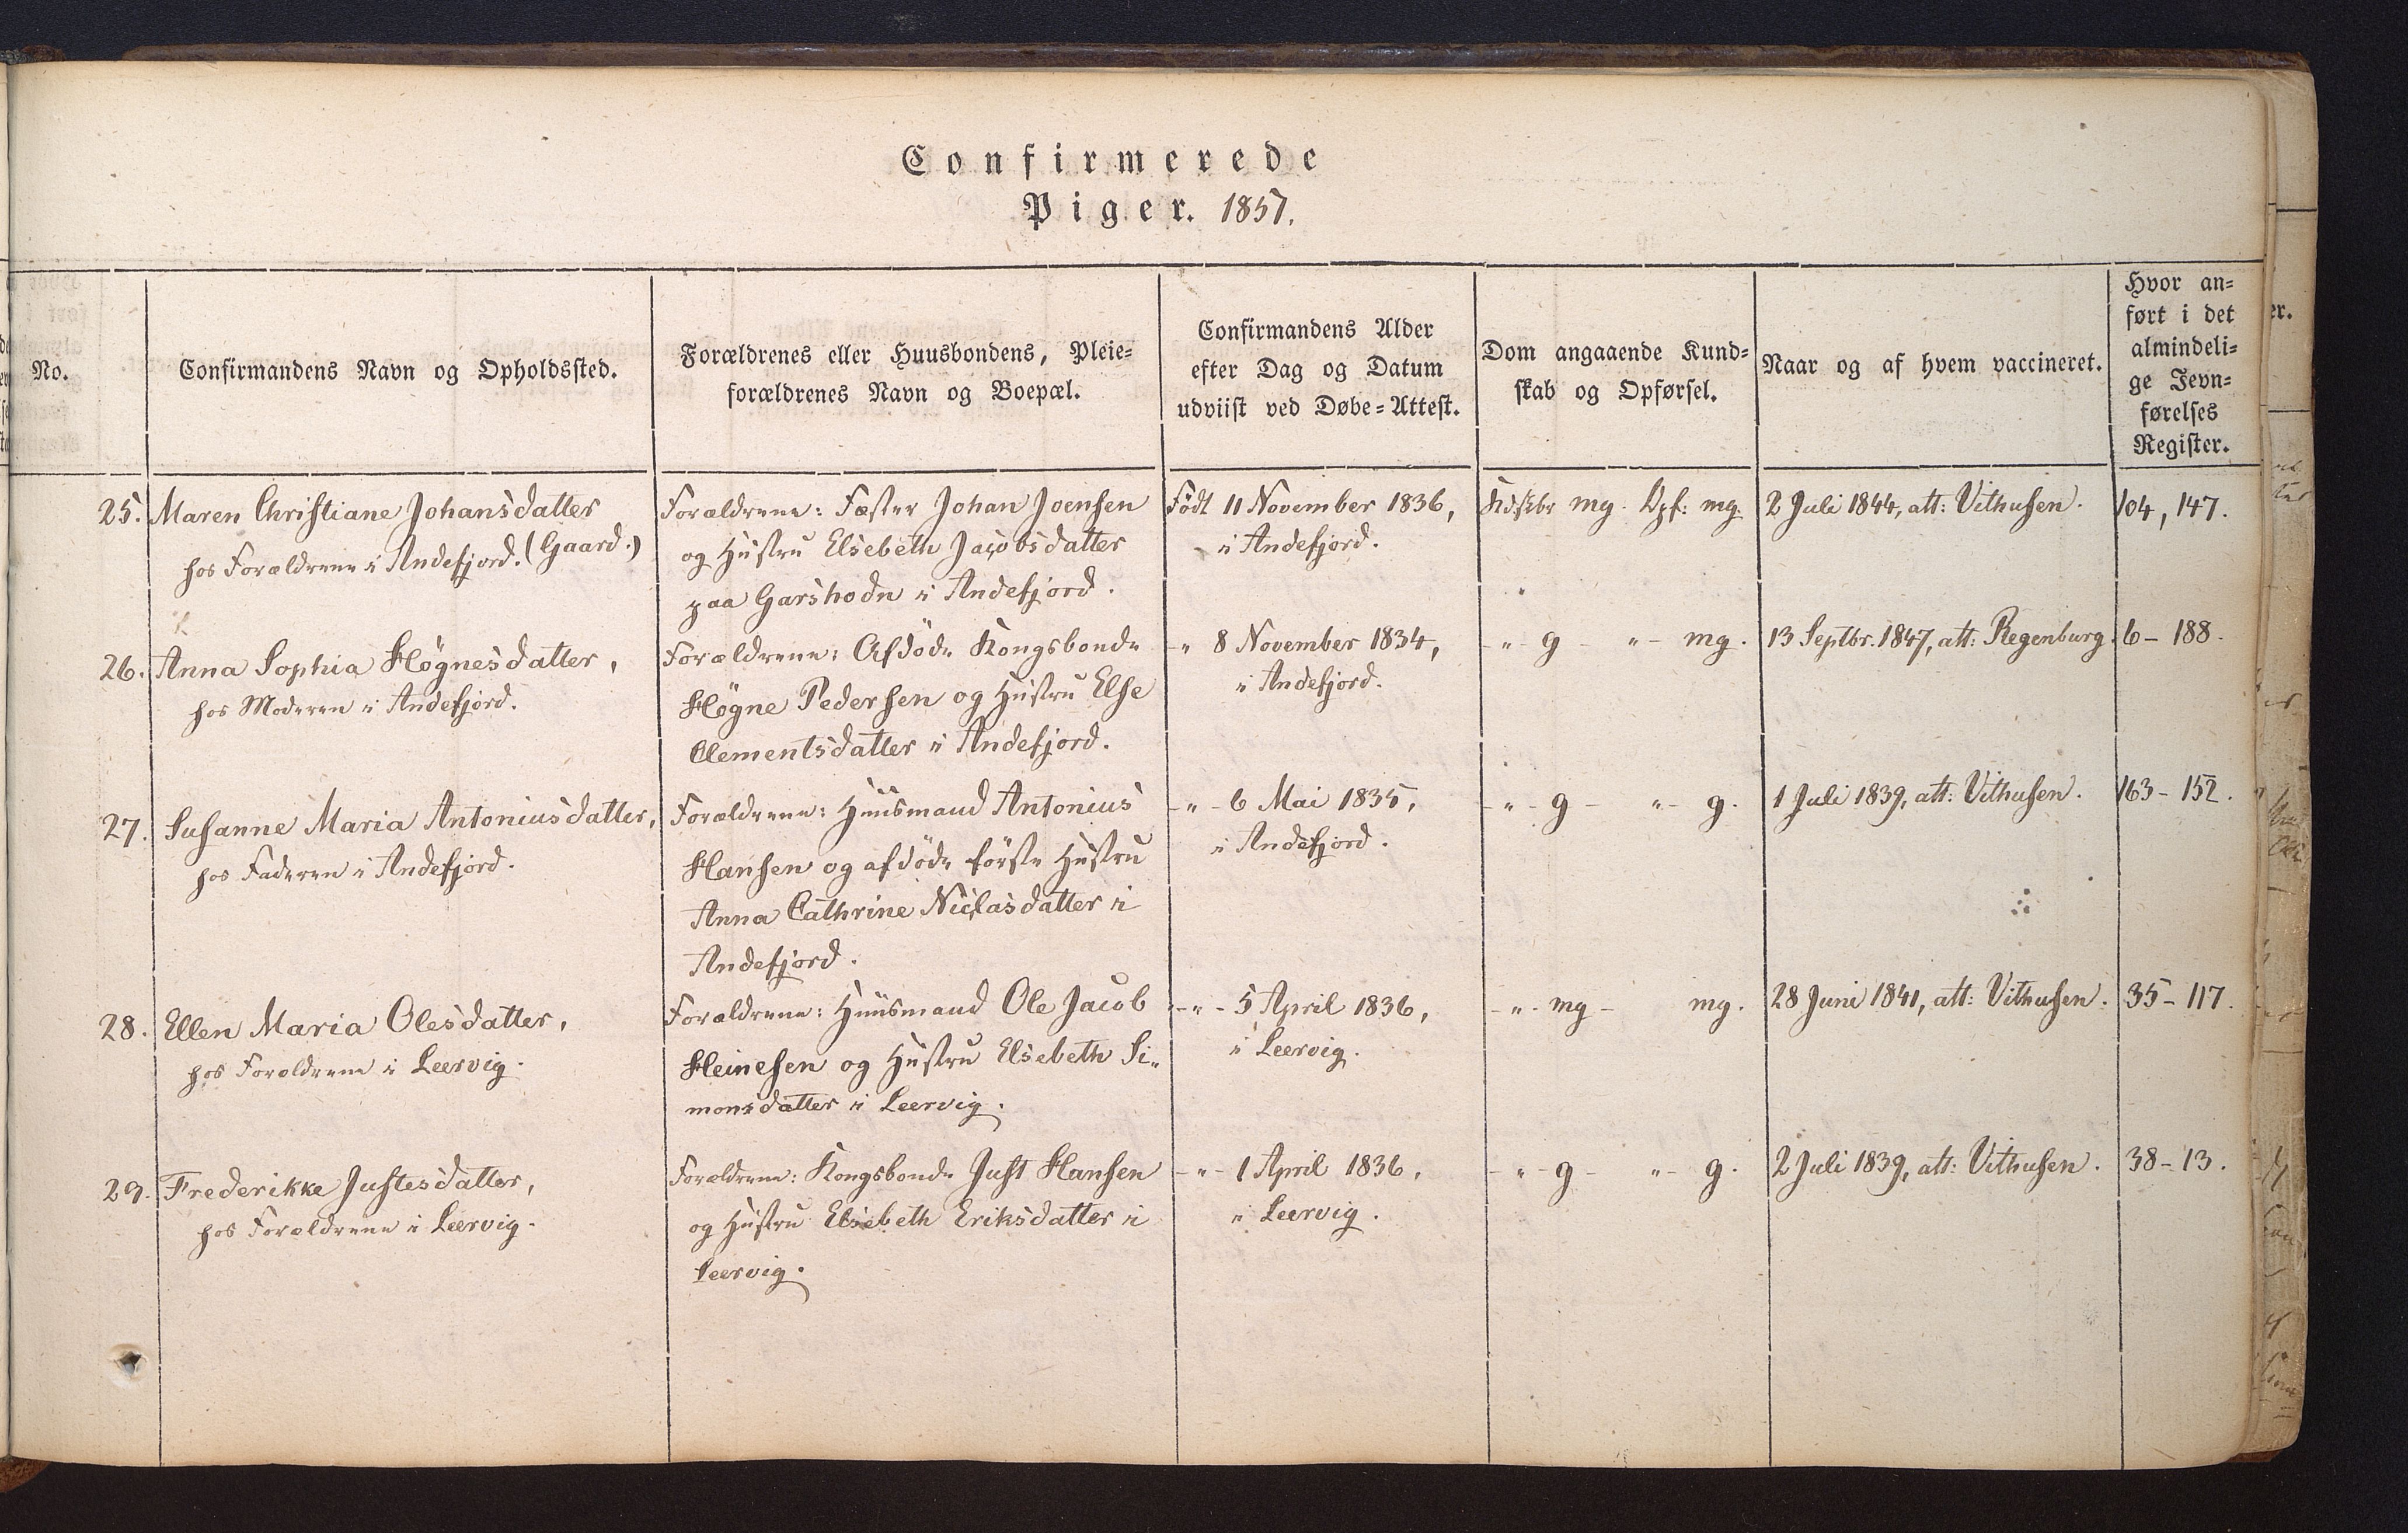 Confirmerede
Piger. 1851.
No.
Confirmandens Navn og Opholdssted.
Forældrenes eller Huusbondens, Pleie=
forældrenes Navn og Boepæl.
Confirmandens Alder
efter Dag og Datum
udviist ved Døbe=Attest.
Dom angaaende Kund=
skab og Opførsel.
Naar og af hvem vaccineret.
Hvor an=
ført i det
almindeli=
ge Jevn=
førelses
Register.
25. Maren Christiane Johansdatter
hos Forældrene i Andefjord. (Gaard.)
Forældrene: Fæster Johan Joensen
og Hustru Elsebeth Jacobsdatter
paa Garshodn i Andefjord.
Født 11 November 1836,
i Andefjord.
Kdskbr mg. Opf: mg.
2 Juli 1844, att: Vithusen.
104, 147.
26. Anna Sophia Høgnesdatter,
hos Moderen i Andefjord.
Forældrene: Afdöde Kongsbonde
Høgne Pedersen og Hustru Else
Clementsdatter i Andefjord.
- " 8 November 1834,
i Andefjord.
- " - g - " - mg.
13 Septbr. 1847, att: Regenburg.
6 - 188.
27. Susanne Maria Antoniusdatter,
hos Faderen i Andefjord.
Forældrene: Huusmand Antonius
Hansen og afdöde förste Hustru
Anna Cathrine Niclasdatter i
Andefjord.
- " - 6 Mai 1835,
i Andefjord.
- " - g - " - g.
1 Juli 1839, att: Vithusen.
163 - 152.
28. Ellen Maria Olesdatter,
hos Forældrene i Leervig.
Forældrene: Huusmand Ole Jacob
Heinesen og Hustru Elsebeth Si-
monsdatter i Leervig.
- " - 5 April 1836,
i Leervig.
- " - mg - mg.
28 Juni 1841, att: Vithusen.
35 - 117.
29. Frederikke Justesdatter,
hos Forældrene i Leervig.
Forældrene: Kongsbonde Just Hansen
og Hustru Elsebeth Eriksdatter i
Leervig.
- " - 1 April 1836,
i Leervig.
- " - g - " - g.
2 Juli 1839, att: Vithusen.
38 - 13.